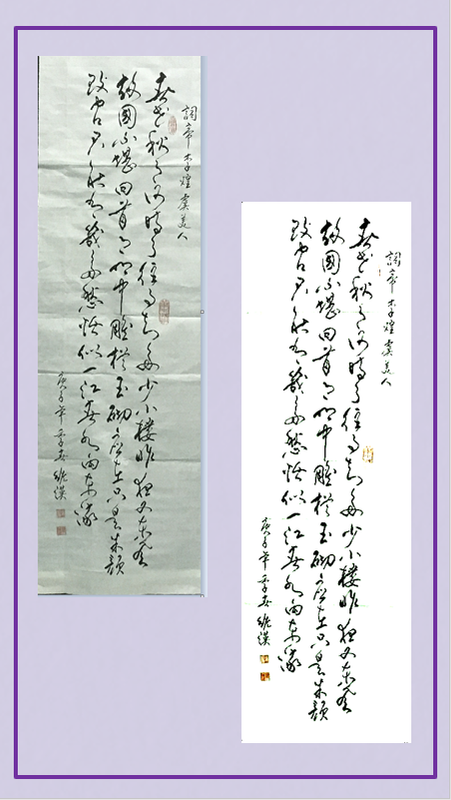 詞帝李煜虞美人
春花秋月何時了往事知多少小樓昨夜又東風
故國不堪回首月明中雕欄玉砌應猶在只是朱顏
改問君能有幾多愁恰似一江春水向東流
庚子年
詞帝李煜虞美人
春花秋月何時了往事知多少小樓昨夜又東風
故國不堪回首月明中雕欄玉砌應猶在只是朱顏
改問君能有幾多愁恰似一江春水向東流
庚子年